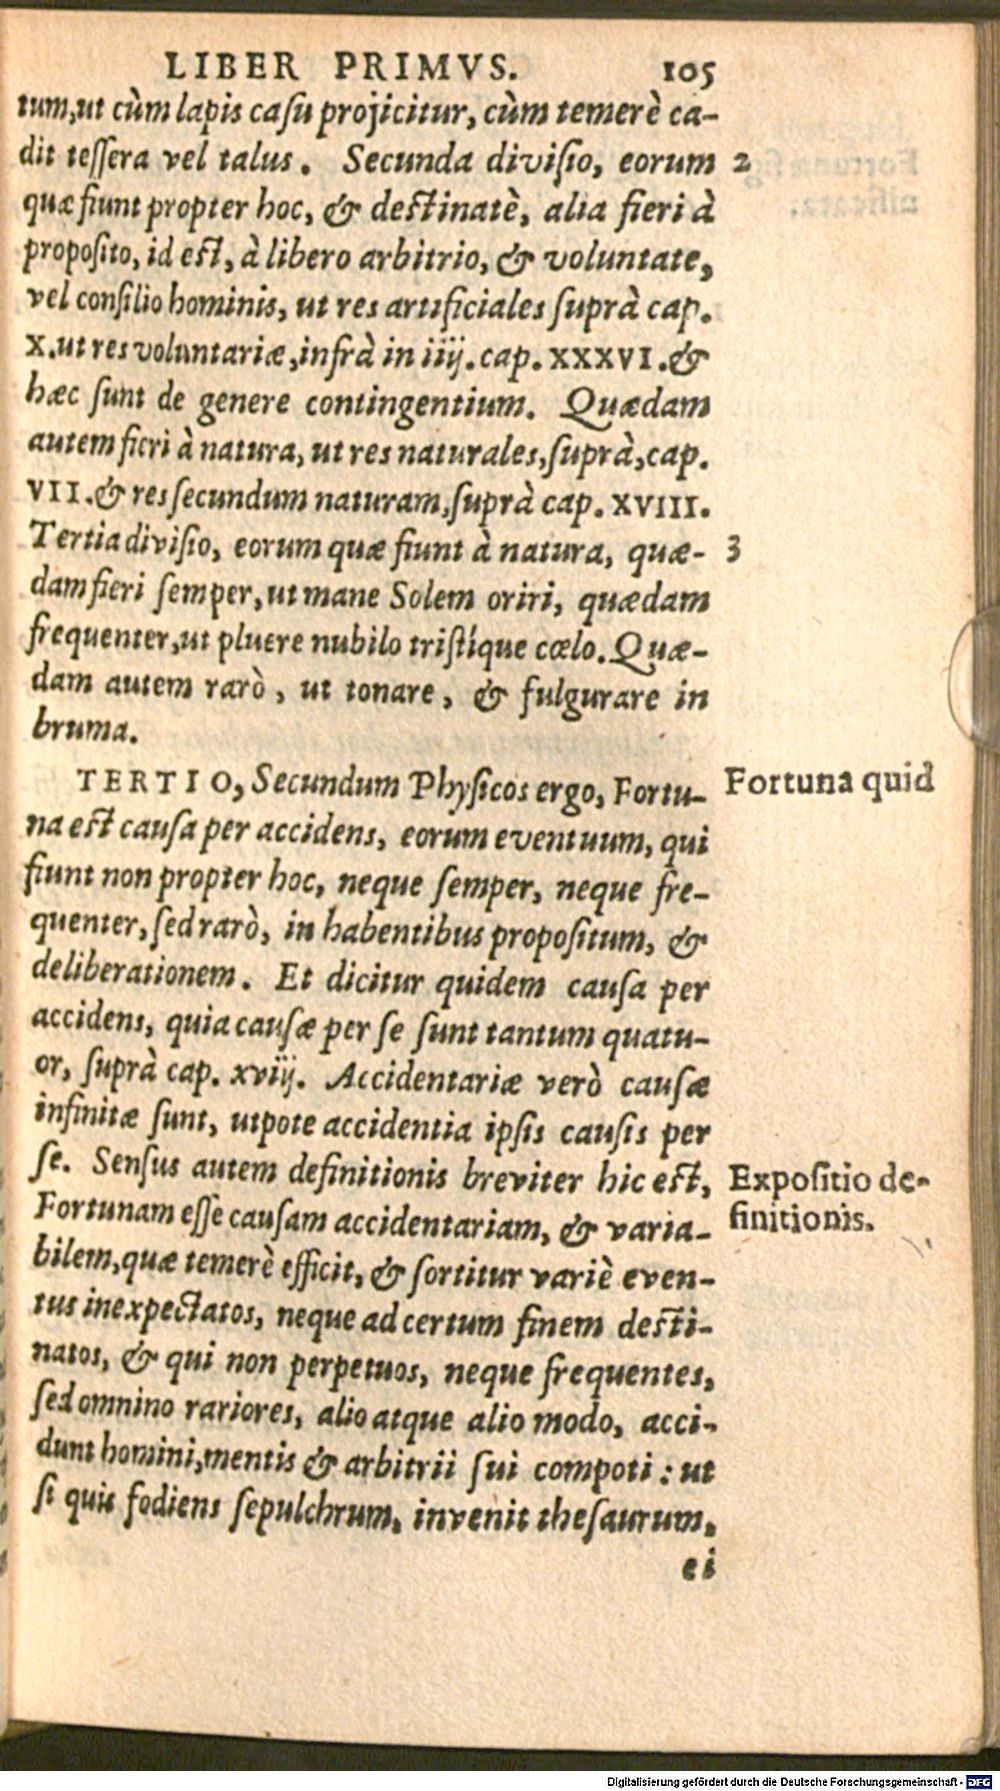 LIBER PRIMVS. 105
tum, ut cùm lapis casu projicitur, cùm temerè ca-
dit tessera vel talus. Secunda divisio, eorum 2
quæ fiunt propter hoc, & destinatè, alia fieri à
proposito, id est, à libero arbitrio, & voluntate,
vel consilio hominis, ut res artificiales suprà cap.
X. ut res voluntariæ, infrà in iiij. cap. XXXVI. &
hæc sunt de genere contingentium. Quædam
autem fieri à natura, ut res naturales, suprà, cap.
VII. & res secundum naturam, suprà cap. XVIII.
Tertia divisio, eorum quæ fiunt à natura, quæ- 3
dam fieri semper, ut mane Solem oriri, quædam
frequenter, ut pluere nubilo tristíque cœlo. Quæ-
dam autem rarò, ut tonare, & fulgurare in
bruma.
TERTIO, Secundum Physicos ergo, Fortu- Fortuna quid
na est causa per accidens, eorum eventuum, qui
fiunt non propter hoc, neque semper, neque fre-
quenter, sed rarò, in habentibus propositum, &
deliberationem. Et dicitur quidem causa per
accidens, quia causæ per se sunt tantum quatu-
or, suprà cap. xviij. Accidentariæ verò causæ
infinitæ sunt, utpote accidentia ipsis causis per
se. Sensus autem definitionis breviter hic est, Expositio de-
Fortunam esse causam accidentariam, & varia- finitionis.
bilem, quæ temerè efficit, & sortitur variè even-
tus inexpectatos, neque ad certum finem desti-
natos, & qui non perpetuos, neque frequentes,
sed omnino rariores, alio atque alio modo, acci-
dunt homini, mentis & arbitrii sui compoti: ut
si quis fodiens sepulchrum, invenit thesaurum,
ei
Digitalisierung gefördert durch die Deutsche Forschungsgemeinschaft - DFG